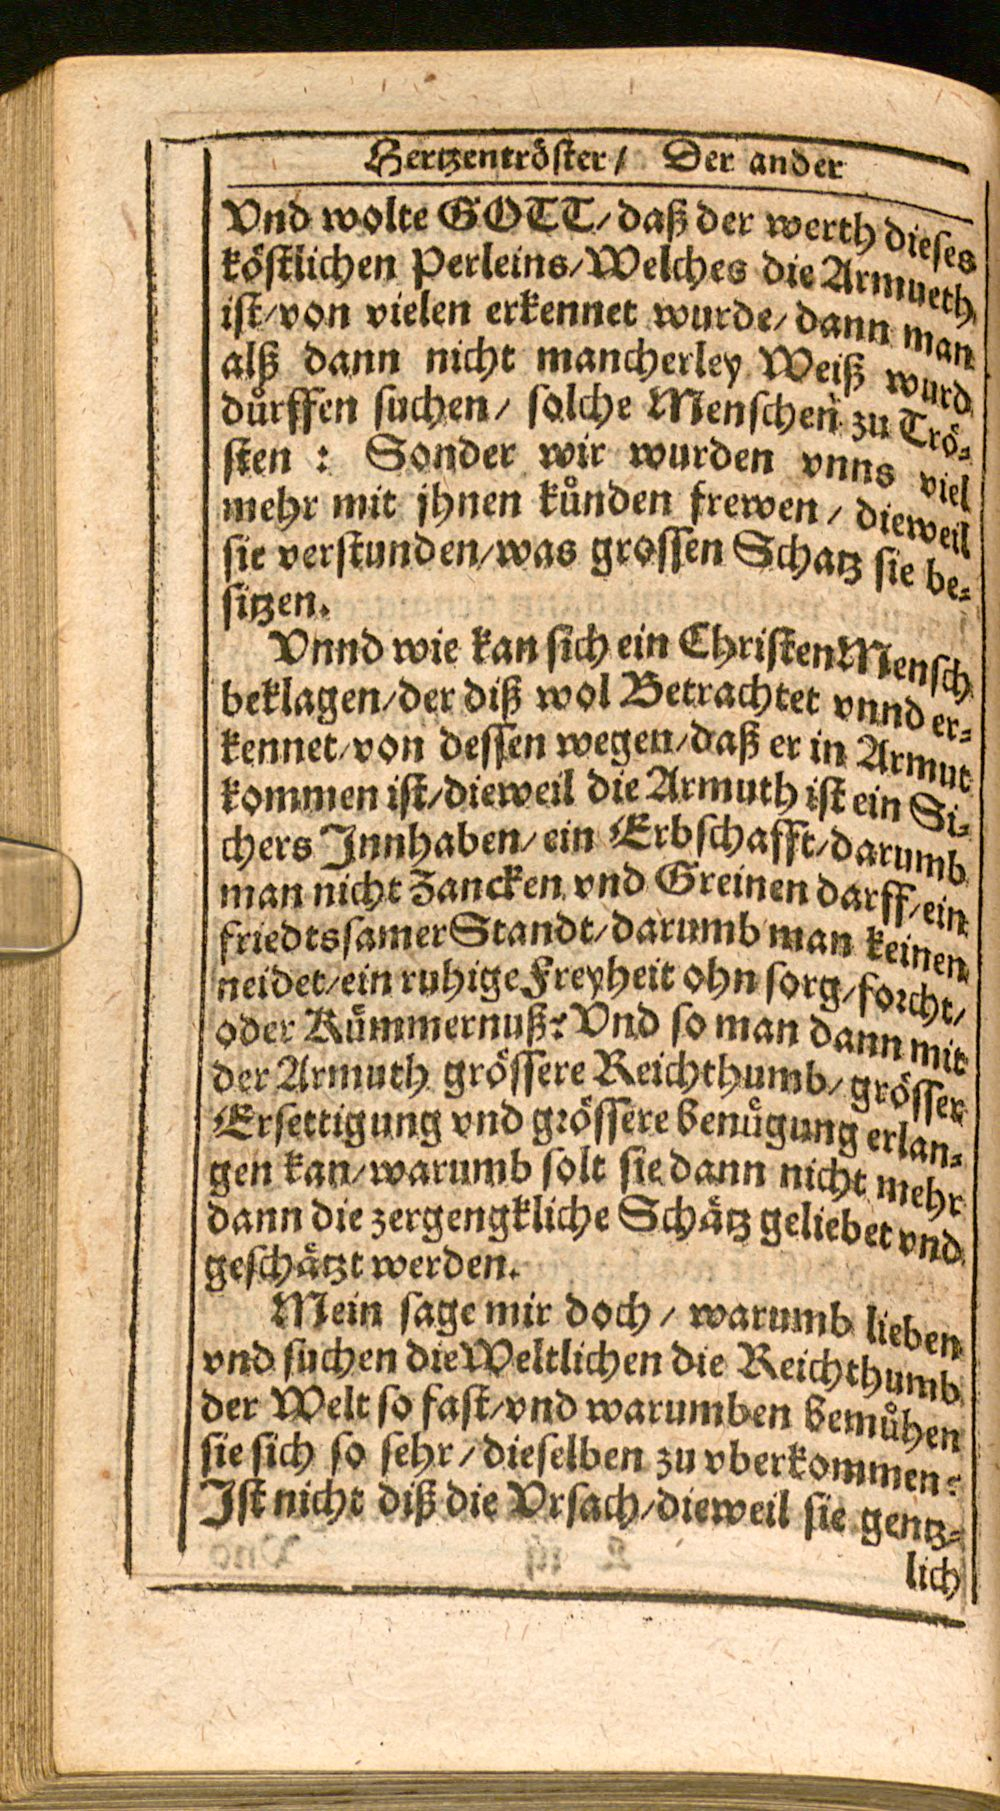 Hertzentröster / Der ander
Vnd wolte GOTT / daß der werth dieses
köstlichen Perleins / Welches die Armueth
ist / von vielen erkennet wurde / dann man
alß dann nicht mancherley Weiß wurd
důrffen suchen / solche Menschen zu Trö-
sten : Sonder wir wurden vnns viel
mehr mit jhnen kůnden frewen / dieweil
sie verstunden / was grossen Schatz sie be-
sitzen.
Vnnd wie kan sich ein Christen Mensch
beklagen / der diß wol Betrachtet vnnd er-
kennet / von dessen wegen / daß er in Armut
kommen ist / dieweil die Armuth ist ein Si-
chers Innhaben / ein Erbschafft / darumb
man nicht Zancken vnd Greinen darff / ein
friedtssamer Standt / darumb man keinen
neidet / ein ruhige Freyheit ohn sorg / forcht /
oder Kůmmernuß? Vnd so man dann mit
der Armuth grössere Reichthumb / grösser
Ersettigung vnd grössere benůgung erlan-
gen kan / warumb solt sie dann nicht mehr
dann die zergengkliche Schåtz geliebet vnd
geschåtzt werden.
Mein sage mir doch / warumb lieben
vnd suchen die Weltlichen die Reichthumb
der Welt so fast / vnd warumben bemůhen
sie sich so sehr / dieselben zu vberkommen:
Ist nicht diß die Vrsach / dieweil sie gentz-
lich